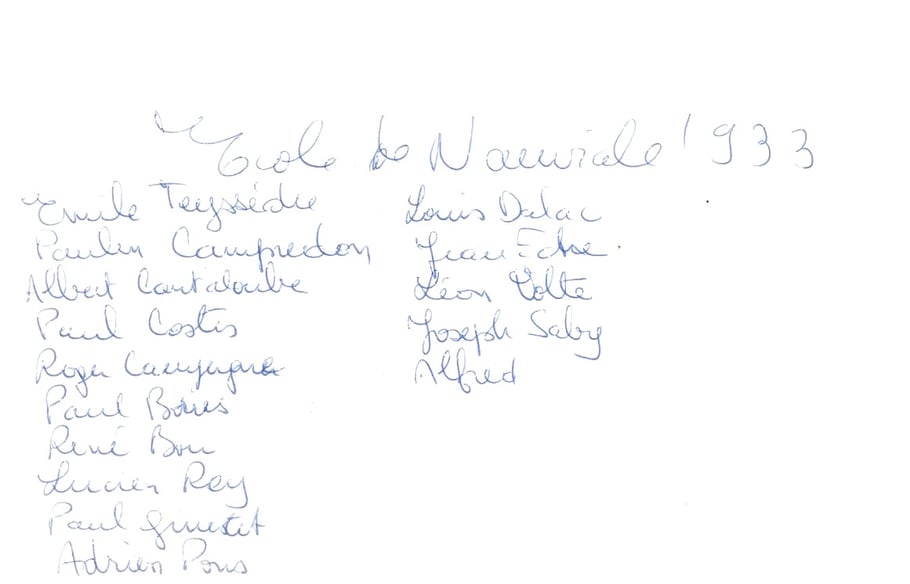 Ecole de Nauviale 1933
Emile Teyssédre
Paulin Campredon
Albert Cantaloube
Paul Costis
Roger Campergue
Paul Bories
René Bou
Lucien Rey
Paul Ginestet
Adrien Pons
Louis Dalac
Jean
Léon Volte
Joseph Saby
Alfred